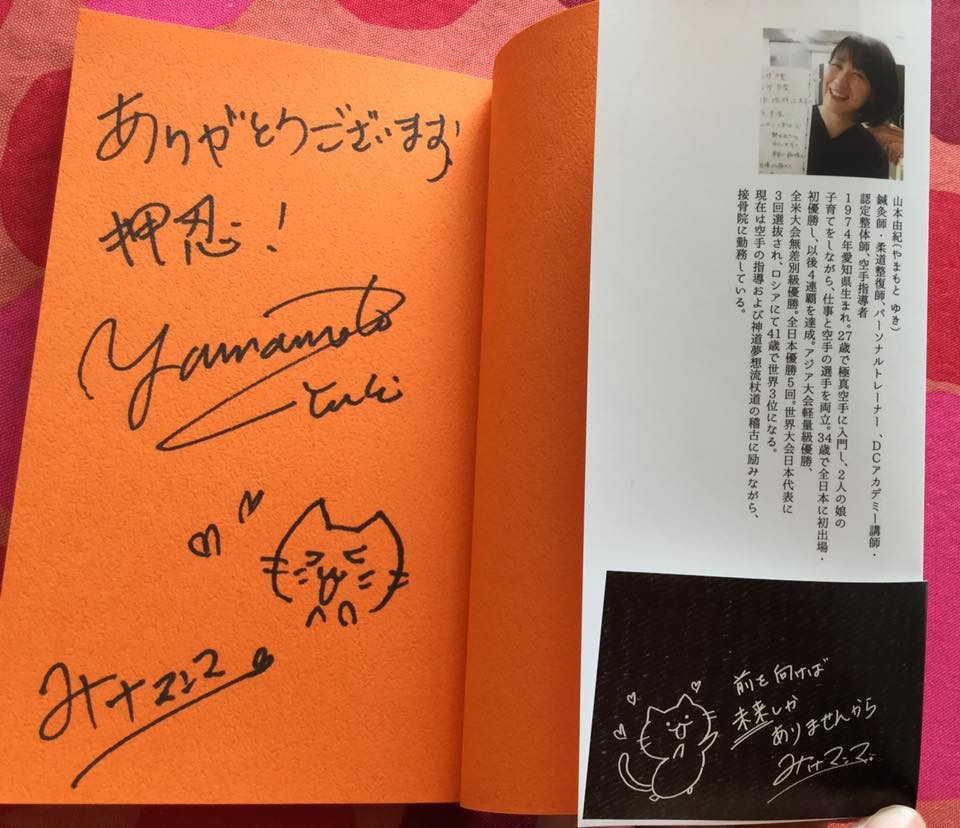 ありがとうございます
押忍!
Yamamoto
Yuki
ミナマンマ
山本由紀(やまもと ゆき)
鍼灸師・柔道整復師、パーソナルトレーナー、DCアカデミー講師・
認定整体師、空手指導者
1974年愛知県生まれ。27歳で極真空手に入門し、2人の娘の
子育てをしながら、仕事と空手の選手を両立。34歳で全日本に初出場・
初優勝し、以後4連覇を達成。アジア大会軽量級優勝、
全米大会無差別級優勝。全日本優勝5回。世界大会日本代表に
3回選抜され、ロシアにて41歳で世界3位になる。
現在は空手の指導および神道夢想流杖道の稽古に励みながら、
接骨院に勤務している。
前を向けば
未来しか
ありませんから